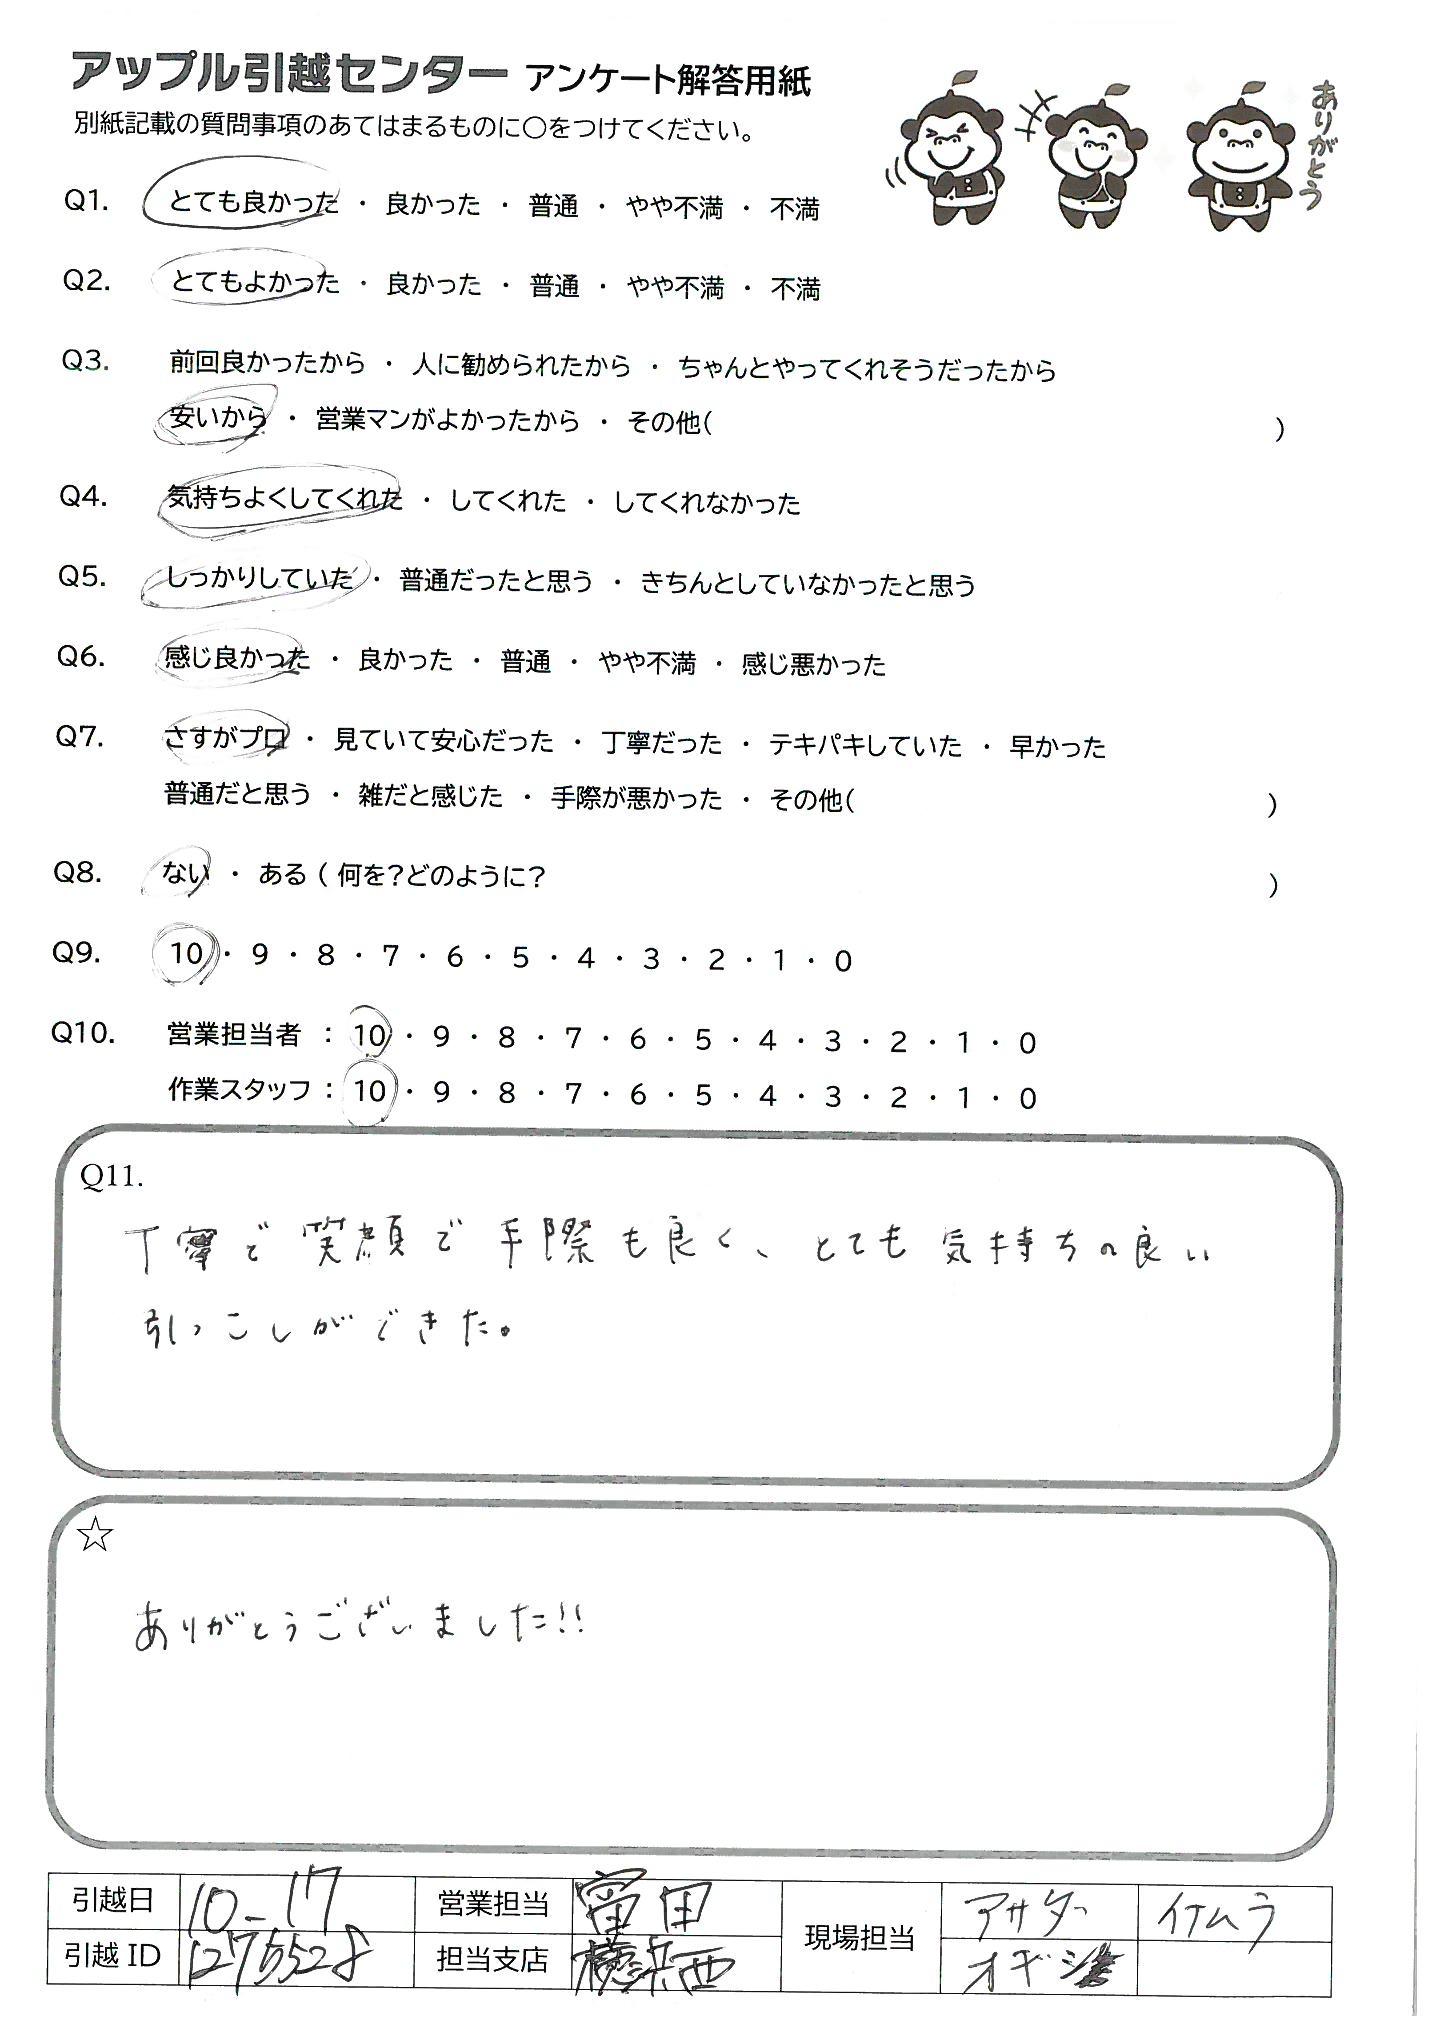 アップル引越センター アンケート解答用紙
別紙記載の質問事項のあてはまるものに○をつけてください。
ありがとう
Q1. とても良かった ・ 良かった ・ 普通 ・ やや不満 ・ 不満
Q2. とてもよかった ・ 良かった ・ 普通 ・ やや不満 ・ 不満
Q3. 前回良かったから ・ 人に勧められたから ・ ちゃんとやってくれそうだったから
安いから ・ 営業マンがよかったから ・ その他( )
Q4. 気持ちよくしてくれた ・ してくれた ・ してくれなかった
Q5. しっかりしていた ・ 普通だったと思う ・ きちんとしていなかったと思う
Q6. 感じ良かった ・ 良かった ・ 普通 ・ やや不満 ・ 感じ悪かった
Q7. さすがプロ ・ 見ていて安心だった ・ 丁寧だった ・ テキパキしていた ・ 早かった
普通だと思う ・ 雑だと感じた ・ 手際が悪かった ・ その他( )
Q8. ない ・ ある ( 何を?どのように? )
Q9. 10 ・ 9 ・ 8 ・ 7 ・ 6 ・ 5 ・ 4 ・ 3 ・ 2 ・ 1 ・ 0
Q10. 営業担当者 : 10 ・ 9 ・ 8 ・ 7 ・ 6 ・ 5 ・ 4 ・ 3 ・ 2 ・ 1 ・ 0
作業スタッフ : 10 ・ 9 ・ 8 ・ 7 ・ 6 ・ 5 ・ 4 ・ 3 ・ 2 ・ 1 ・ 0
Q11.
丁寧で笑顔で手際も良く、とても気持ちの良い
引っこしができた。
☆
ありがとうございました!!
引越日 10-17 営業担当 富田 現場担当 アサダ イナムラ
引越 ID 1275528 担当支店 横浜西 オギシ